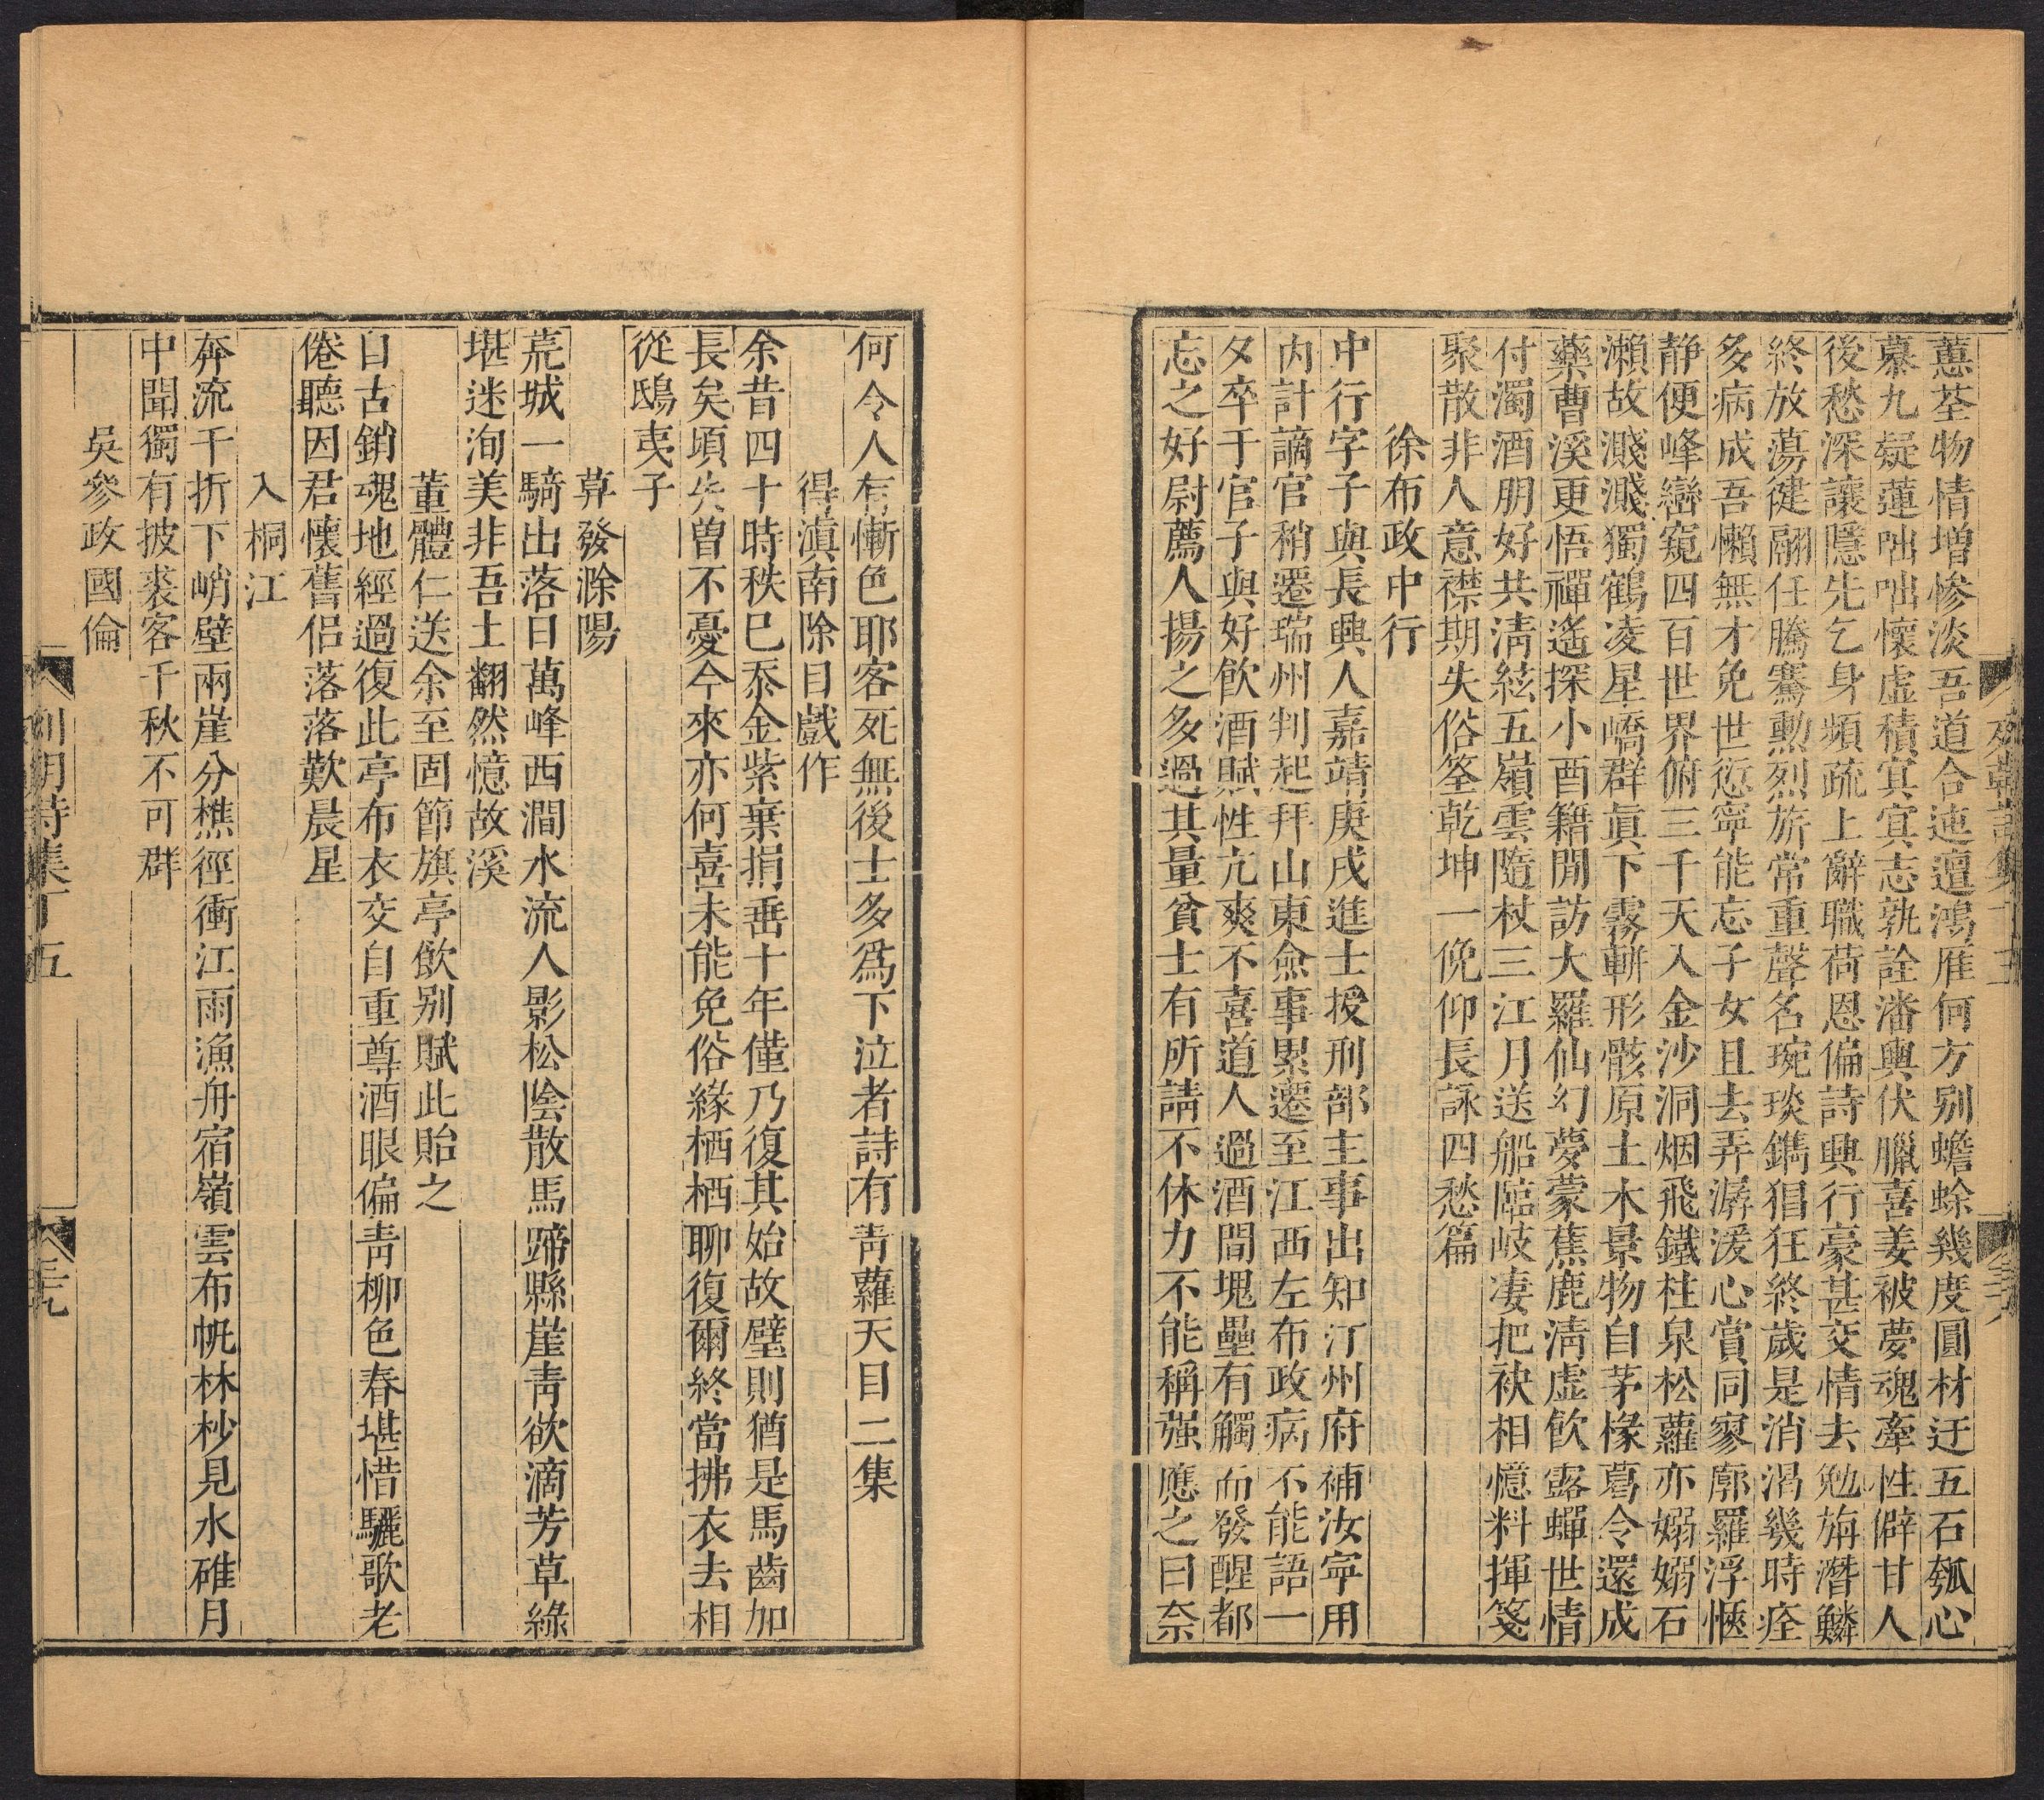 蕙荃物情增慘淡吾道合迍邅鴻雁何方别蟾蜍幾度圓材迂五石瓠心
慕九疑蓮咄咄懷虚積冥冥志孰詮潘輿伏臘喜姜被夢魂牽性僻甘人
後愁深讓隱先乞身頻疏上辭職荷恩偏詩興行豪甚交情去勉旃潛鱗
終放蕩健翮任騰騫勲烈旂常重聲名琬琰鐫猖狂終歲是消渴幾時痊
多病成吾懶無才免世愆寧能忘子女且去弄潺湲心賞同寥廓羅浮愜
静便峰巒窺四百世界俯三千天入金沙洞烟飛鐵柱泉松蘿亦嫋嫋石
瀨故濺濺獨鶴凌星嶠群眞下霧軿形骸原土木景物自茅椽葛令還成
藥曹溪更悟禪遙探小酉籍閒訪大羅仙幻夢蒙蕉鹿淸虚飲露蟬世情
付濁酒朋好共淸絃五嶺雲隨杖三江月送船臨岐凄把袂相憶料揮箋
聚散非人意襟期失俗筌乾坤一俛仰長詠四愁篇
徐布政中行
中行字子與長興人嘉靖庚戌進士授刑部主事出知汀州府補汝寧用
内計謫官稍遷瑞州判起拜山東僉事累遷至江西左布政病不能語一
夕卒于官子與好飲酒賦性亢爽不喜道人過酒間塊壘有觸而發醒都
忘之好尉薦人揚之多過其量貧士有所請不休力不能稱强應之曰奈
何令人有慚色耶客死無後士多爲下泣者詩有靑蘿天目二集
得滇南除目戲作
余昔四十時秩已忝金紫棄捐垂十年僅乃復其始故璧則猶是馬齒加
長矣頃失曾不憂今來亦何喜未能免俗緣栖栖聊復爾終當拂衣去相
從鴟夷子
早發滁陽
荒城一騎出落日萬峰西澗水流人影松陰散馬蹄縣崖靑欲滴芳草綠
堪迷洵美非吾土翻然憶故溪
董體仁送余至固節旗亭飲别賦此貽之
自古銷魂地經過復此亭布衣交自重尊酒眼偏靑柳色春堪惜驪歌老
倦聽因君懷舊侣落落歎晨星
入桐江
奔流千折下峭壁兩崖分樵徑衝江雨漁舟宿嶺雲布帆林杪見水碓月
中聞獨有披裘客千秋不可群
吳參政國倫
列朝詩集丁五
三十九